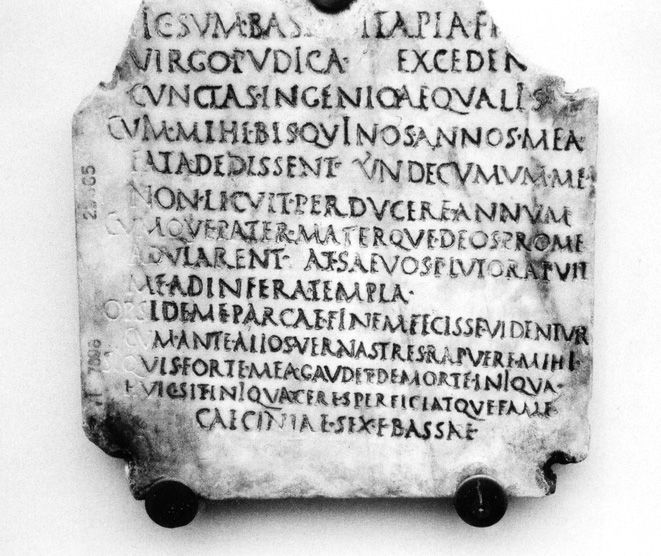 HIC SVM BASSA PIA F
VIRGO PVDICA EXCEDEN
CVNCTAS·INGENIO AEQVALIS
CVM·MIHI·BIS QVINOS ANNOS·MEA
FATA DEDISSENT VNDECVMVM·ME
NON·LICVIT·PERDVCERE ANNVM
CVMQVE PATER·MATERQVE·DEOS PRO ME
ADVLARENT· AT SAEVOS PLVTO RAPVIT
ME AD INFERA TEMPLA·
IDEM E PARCAE FINEM FECISSE VIDENTVR
CVM·ANTE ALIOS VERNAS TRES RAPVERE MIHI·
QVIS·FORTE MEA GAVDET DE MORTE·INIQVA·
HVIC SIT INIQVA CERES PERFICIATQVE FAME
CAECINIAE·SEX·F BASSAE